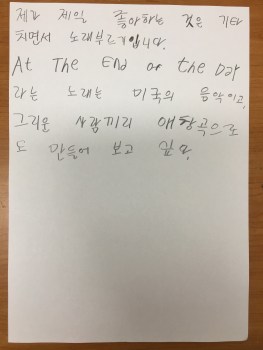 제가 제일 좋아하는 것은 기타
치면서 노래부르기입니다.
At The End of the Day
라는 노래는 미국의 음악이고,
그리운 사람끼리 애창곡으로
도 만들어 보고 싶다.